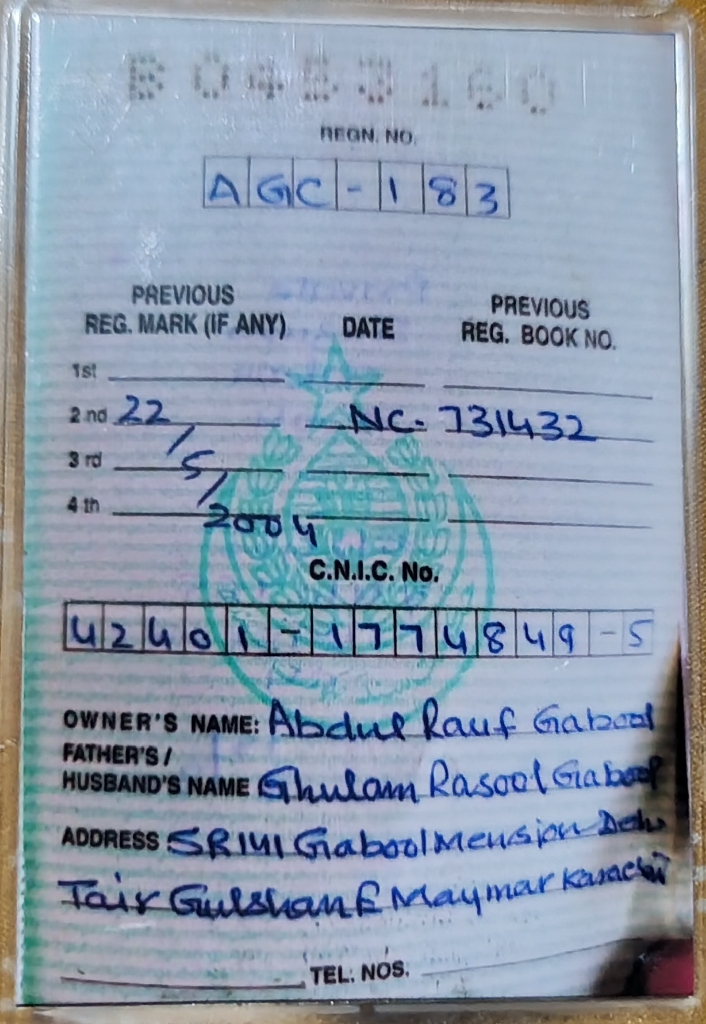 B0453160
REGN. NO.
AGC-183
PREVIOUS REG. MARK (IF ANY) DATE PREVIOUS REG. BOOK NO.
1st
2nd 22/5/2004 NC-731432
3rd
4th
C.N.I.C. No.
42401-1774849-5
OWNER'S NAME: Abdul Rauf Gabool
FATHER'S /
HUSBAND'S NAME Ghulam Rasool Gabool
ADDRESS SR 141 Gabool Mension Deh
Tair Gulshan E Maymar Karachi
TEL: NOS.